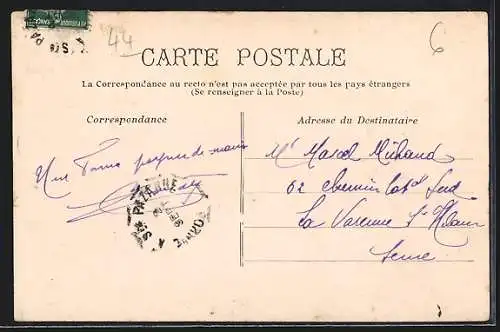 44
6
CARTE POSTALE
La Correspondance au recto n'est pas acceptée par tous les pays étrangers
(Se renseigner à la Poste)
Correspondance
Adresse du Destinataire
Une bonne poignée de main
Mr Marcel Michaud
62 chemin lat Sud
La Varenne St Hilaire
Seine
Ste PAZANNE